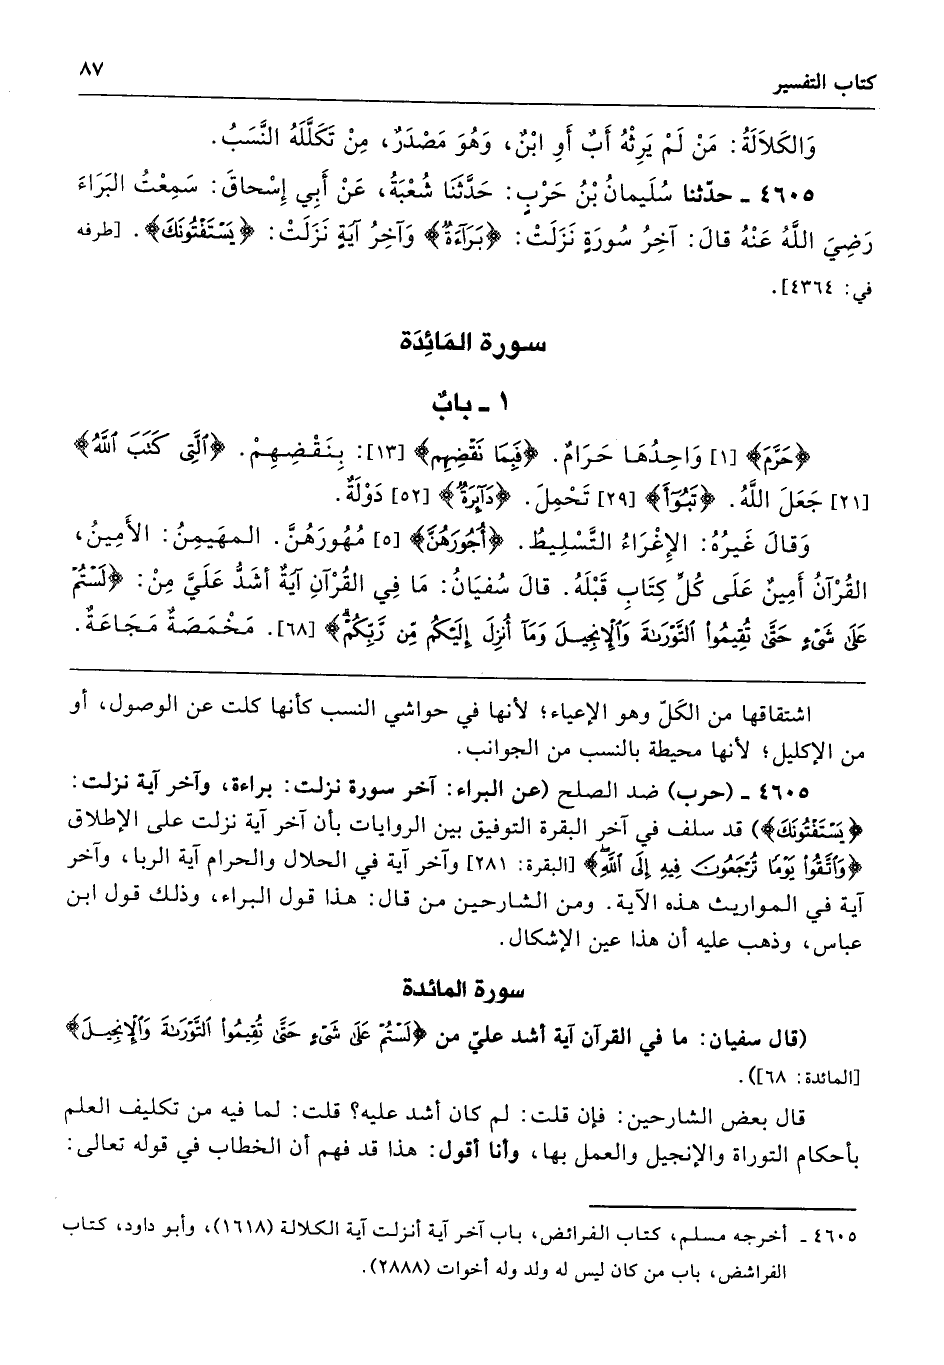 كتاب التفسير
٨٧
وَالكَلاَلَةُ: مَنْ لَمْ يَرِثْهُ أَبٌ أَوِ ابْنٌ، وَهُوَ مَصْدَرٌ، مِنْ تَكَلَّلَهُ النَّسَبُ.
٤٦٠٥ ـ حدّثنا سُلَيمانُ بْنُ حَرْبٍ: حَدَّثَنَا شُعْبَةُ، عَنْ أَبِي إِسْحاقَ: سَمِعْتُ البَرَاءَ
رَضِيَ اللَّهُ عَنْهُ قالَ: آخِرُ سُورَةٍ نَزَلَتْ: ﴿بَرَآءَةٌ﴾ وَآخِرُ آيَةٍ نَزَلَتْ: ﴿يَسْتَفْتُونَكَ﴾. [طرفه
في: ٤٣٦٤].
سورة المَائِدَة
١ ـ بابٌ
﴿حُرُمٌ﴾ [١] وَاحِدُهَا حَرَامٌ. ﴿فَبِمَا نَقْضِهِم﴾ [١٣]: بِنَقْضِهِمْ. ﴿ٱلَّتِي كَتَبَ ٱللَّهُ﴾
[٢١] جَعَلَ اللَّهُ. ﴿تَبُوٓأَ﴾ [٢٩] تَحْمِلَ. ﴿دَآئِرَةٌ﴾ [٥٢] دَوْلَةٌ.
وَقالَ غَيرُهُ: الإِغْرَاءُ التَّسْلِيطُ. ﴿أُجُورَهُنَّ﴾ [٥] مُهُورَهُنَّ. المهَيمِنُ: الأَمِينُ،
القُرْآنُ أَمِينٌ عَلَى كُلِّ كِتَابٍ قَبْلَهُ. قالَ سُفيَانُ: مَا فِي القُرْآنِ آيَةٌ أَشَدُّ عَلَيَّ مِنْ: ﴿لَسْتُمْ
عَلَىٰ شَىْءٍ حَتَّىٰ تُقِيمُوا۟ ٱلتَّوْرَىٰةَ وَٱلْإِنجِيلَ وَمَآ أُنزِلَ إِلَيْكُم مِّن رَّبِّكُمْ﴾ [٦٨]. مَخْمَصَةٌ مَجَاعَةٌ.
اشتقاقها من الكَلّ وهو الإعياء؛ لأنها في حواشي النسب كأنها كلت عن الوصول، أو
من الإكليل؛ لأنها محيطة بالنسب من الجوانب.
٤٦٠٥ ـ (حرب) ضد الصلح (عن البراء: آخر سورة نزلت: براءة، وآخر آية نزلت:
﴿يَسْتَفْتُونَكَ﴾) قد سلف في آخر البقرة التوفيق بين الروايات بأن آخر آية نزلت على الإطلاق
﴿وَٱتَّقُوا۟ يَوْمًا تُرْجَعُونَ فِيهِ إِلَى ٱللَّهِ﴾ [البقرة: ٢٨١] وآخر آية في الحلال والحرام آية الربا، وآخر
آية في المواريث هذه الآية. ومن الشارحين من قال: هذا قول البراء، وذلك قول ابن
عباس، وذهب عليه أن هذا عين الإشكال.
سورة المائدة
(قال سفيان: ما في القرآن آية أشد عليّ من ﴿لَسْتُمْ عَلَىٰ شَىْءٍ حَتَّىٰ تُقِيمُوا۟ ٱلتَّوْرَىٰةَ وَٱلْإِنجِيلَ﴾
[المائدة: ٦٨]).
قال بعض الشارحين: فإن قلت: لم كان أشد عليه؟ قلت: لما فيه من تكليف العلم
بأحكام التوراة والإنجيل والعمل بها، وأنا أقول: هذا قد فهم أن الخطاب في قوله تعالى:
٤٦٠٥ ـ أخرجه مسلم، كتاب الفرائض، باب آخر آية أنزلت آية الكلالة (١٦١٨)، وأبو داود، كتاب
الفراشض، باب من كان ليس له ولد وله أخوات (٢٨٨٨).